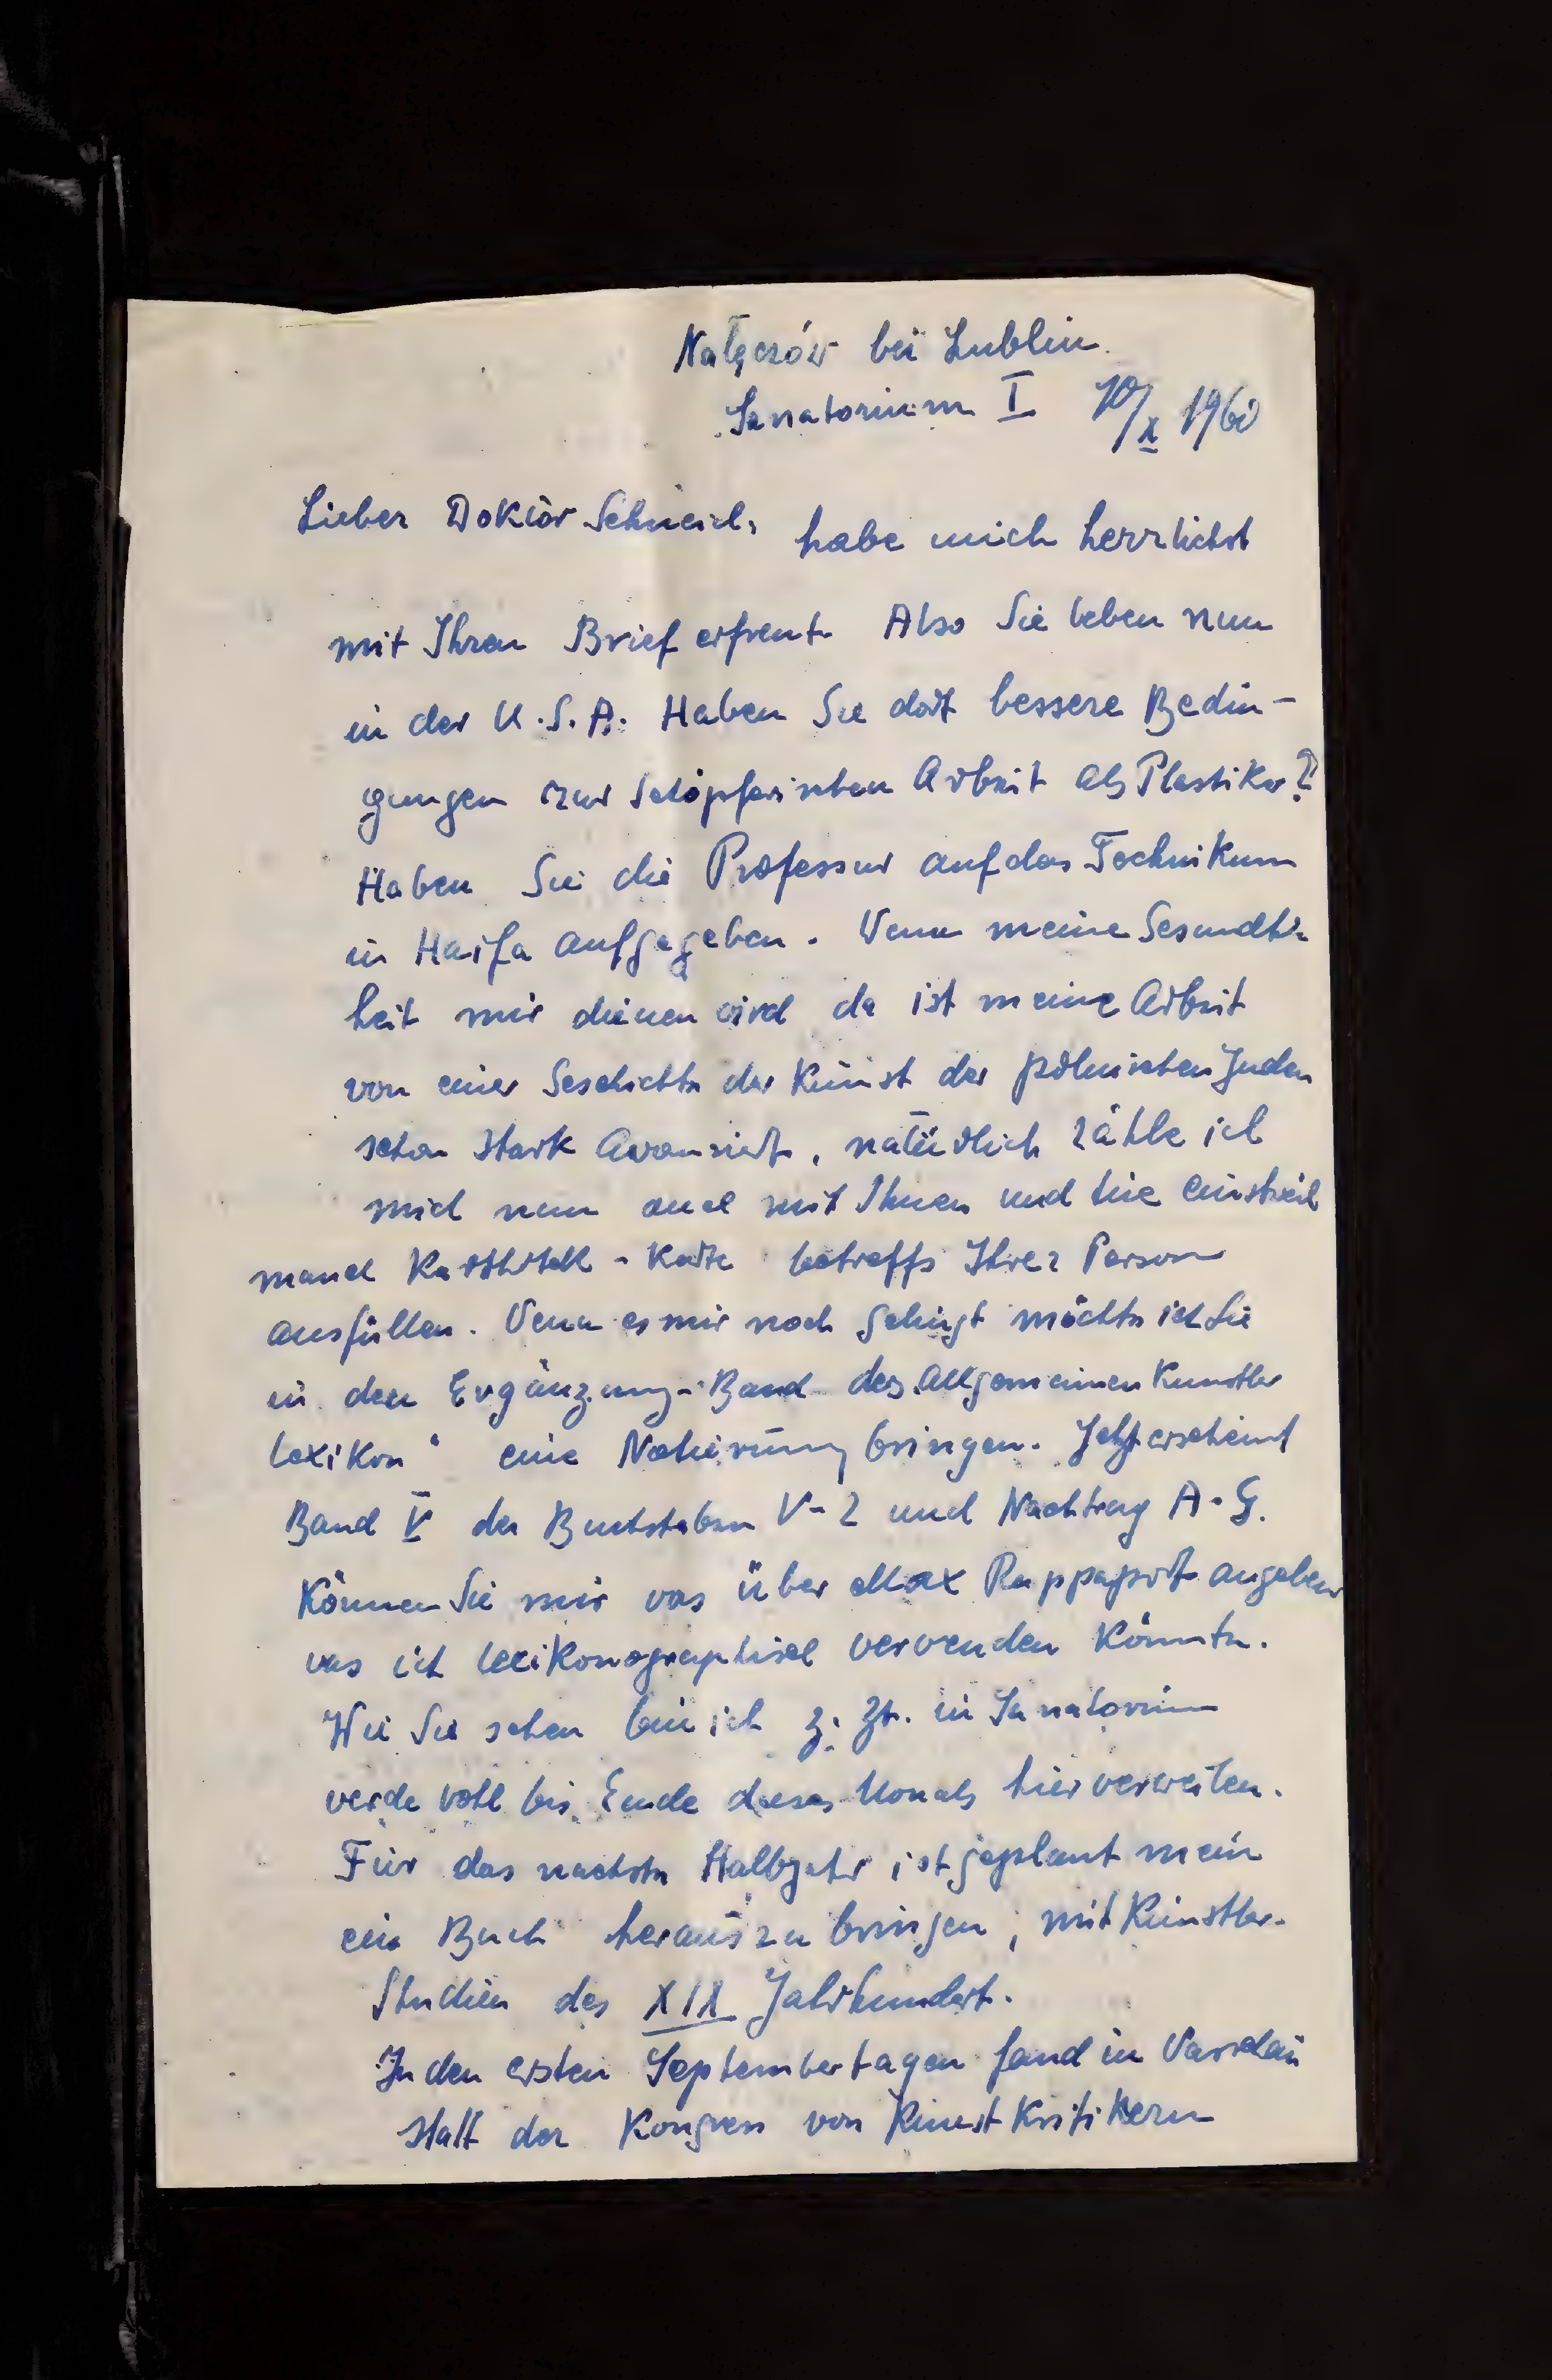 Nałęczów bei Lublin.
Sanatorium I 10/X 1960
Lieber Doktor habe mich herrlichst
mit Ihren Brief erfreut. Also Sie leben nun
in der U.S.A. Haben Sie dort bessere Bedin-
gungen zur schöpferischen Arbeit als Plastiker?
Haben Sie die Professur auf das Technikum
in Haifa aufgegeben. Venn meine Gesundh-
heit mir dienen vird da ist meine Arbeit
von einer Geschichte der Kunst der polnischen Juden
schon stark avansiert, natürlich zähle ich
mich nun auch mit Ihnen und
manch Karthothek-Karte betreffs Ihrer Person
ausfüllen. Venn es mir noch gelingt möchte ich Sie
in den Ergänzung-Band des Allgemeinen Künstler
lexikon" eine Notierung bringen. Jetzt erscheint
Band V der Buchstaben V-Z und Nachtrag A-G.
Können Sie mir vas über Max Rappaport angeben
vas ich lexikonographisch vervenden könnte.
Wie Sie sehen bin ich z. Zt. in Sanatorium
verde vohl bis Ende dieses Monats hier verweilen.
Für das nächste Halbjahr ist geplant mein
ein Buch herauszu bringen, mit Künstler-
Studien des XIX Jahrhundert.
In den ersten Septembertagen fand in Varschau
statt der Kongress von Kunst Kritikern